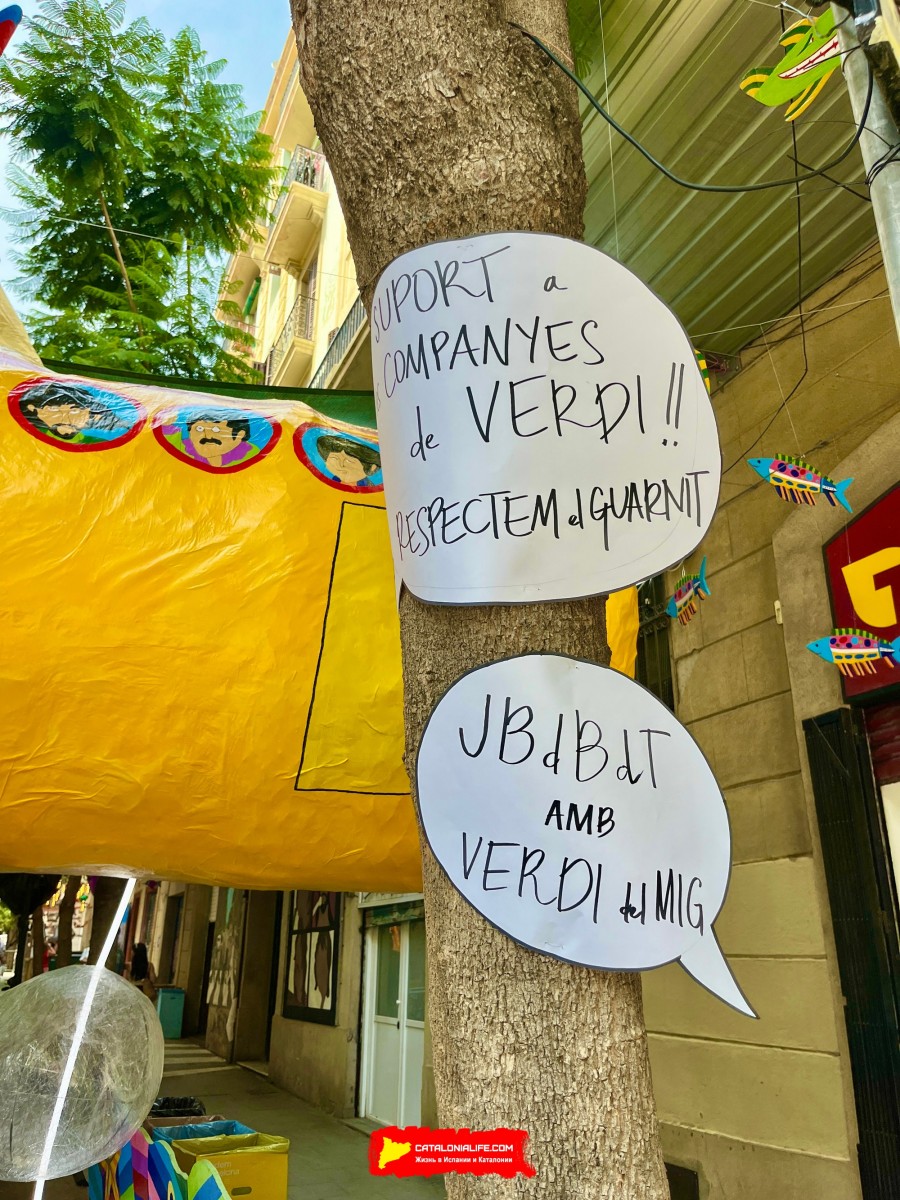 SUPORT a
COMPANYES
de VERDI!!
RESPECTEM el GUARNIT
JBdBdT
AMB
VERDI del MIG
CATALONIALIFE.COM
Жизнь в Испании и Каталонии